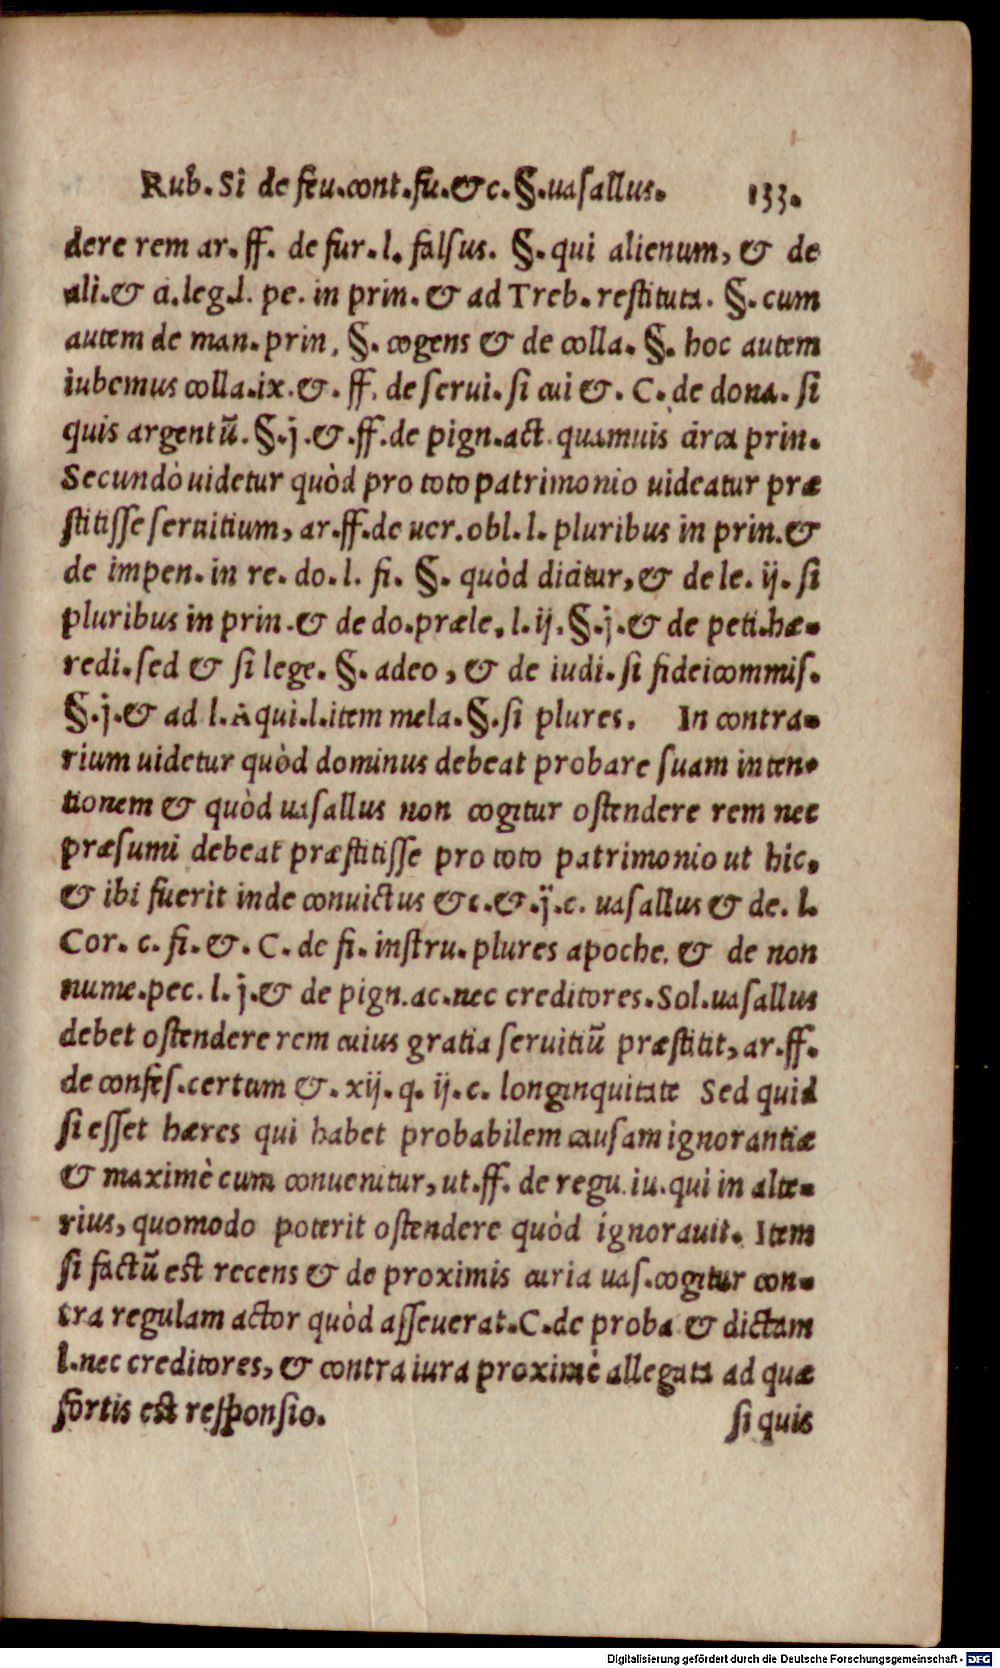 Rub. Si de feu. cont. fu. &c. §. uasallus. 133.
dere rem ar. ff. de fur. l. falsus. §. qui alienum, & de
ali. & ci. leg. l. pe. in prin. & ad Treb. restituta. §. cum
autem de man. prin. §. cogens & de colla. §. hoc autem
iubemus colla. ix. &. ff. de serui. si cui &. C. de dona. si
quis argentũ. §. j. &. ff. de pign. act. quamuis circa prin.
Secundò uidetur quòd pro toto patrimonio uideatur præ
stitisse seruitium, ar. ff. de uer. obl. l. pluribus in prin. &
de impen. in re. do. l. fi. §. quòd dicitur, & de le. ij. si
pluribus in prin. & de do. præle. l. ij. §. j. & de peti. hæ-
redi. sed & si lege. §. adeo, & de iudi. si fideicommis.
§. j. & ad l. Aqui. l. item mela. §. si plures. In contra-
rium uidetur quòd dominus debeat probare suam inten-
tionem & quòd uasallus non cogitur ostendere rem nec
præsumi debeat præstitisse pro toto patrimonio ut hic.
& ibi fuerit inde conuictus &c. &. ij. c. uasallus & de. l.
Cor. c. fi. &. C. de fi. instru. plures apoche. & de non
nume. pec. l. j. & de pign. ac. nec creditores. Sol. uasallus
debet ostendere rem cuius gratia seruitiũ præstitit, ar. ff.
de confes. certum &. xij. q. ij. c. longinquitate Sed quid
si esset hæres qui habet probabilem causam ignorantiæ
& maximè cum conuenitur, ut. ff. de regu. iu. qui in alte-
rius, quomodo poterit ostendere quòd ignorauit. Item
si factũ est recens & de proximis curia uas. cogitur con-
tra regulam actor quòd asseuerat. C. de proba. & dictam
l. nec creditores, & contra iura proximè allegata ad quæ
fortis est responsio. si quis
Digitalisierung gefördert durch die Deutsche Forschungsgemeinschaft - DFG